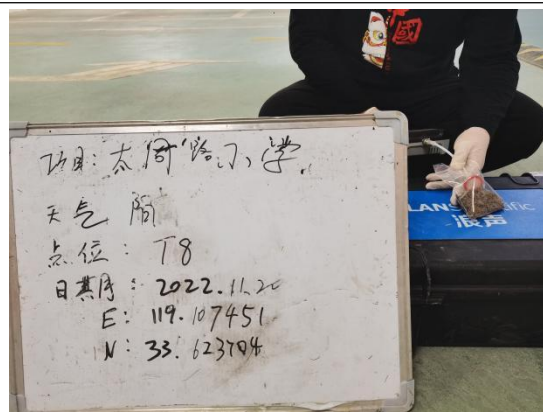 项目：太同路小学.
天气 阴
点位：T8
日期：2022.11.20
E：119.107451
N：33.623704
國
LANScientific
浪声